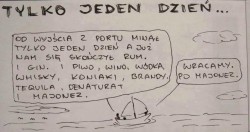 TYLKO JEDEN DZIEŃ...
OD WYJŚCIA Z PORTU MINĄŁ
TYLKO JEDEN DZIEŃ A JUŻ
NAM SIĘ SKOŃCZYŁ RUM,
I GIN, I PIWO, WINO, WÓDKA,
WHISKY, KONIAKI, BRANDY,
TEQUILA, DENATURAT
I MAJONEZ.
WRACAMY.
PO MAJONEZ.